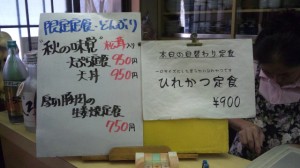 限定定食・どんぶり
秋の味覚 松茸入り
天ぷら定食 950円
天丼 950円
厚切り豚肉の
生姜焼定食
750円
本日の日替わり定食
ひれかつ定食
¥900